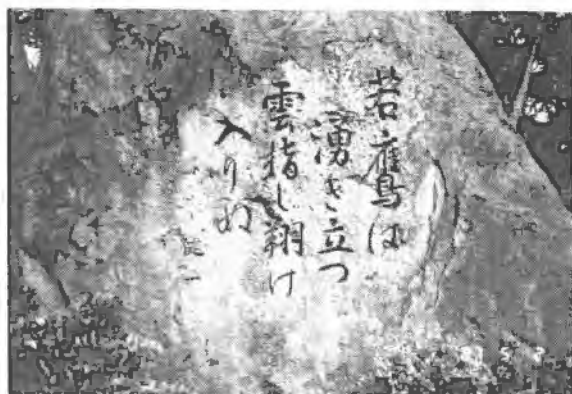 若鷹は
湧き立つ
雲指し翔け
入りぬ